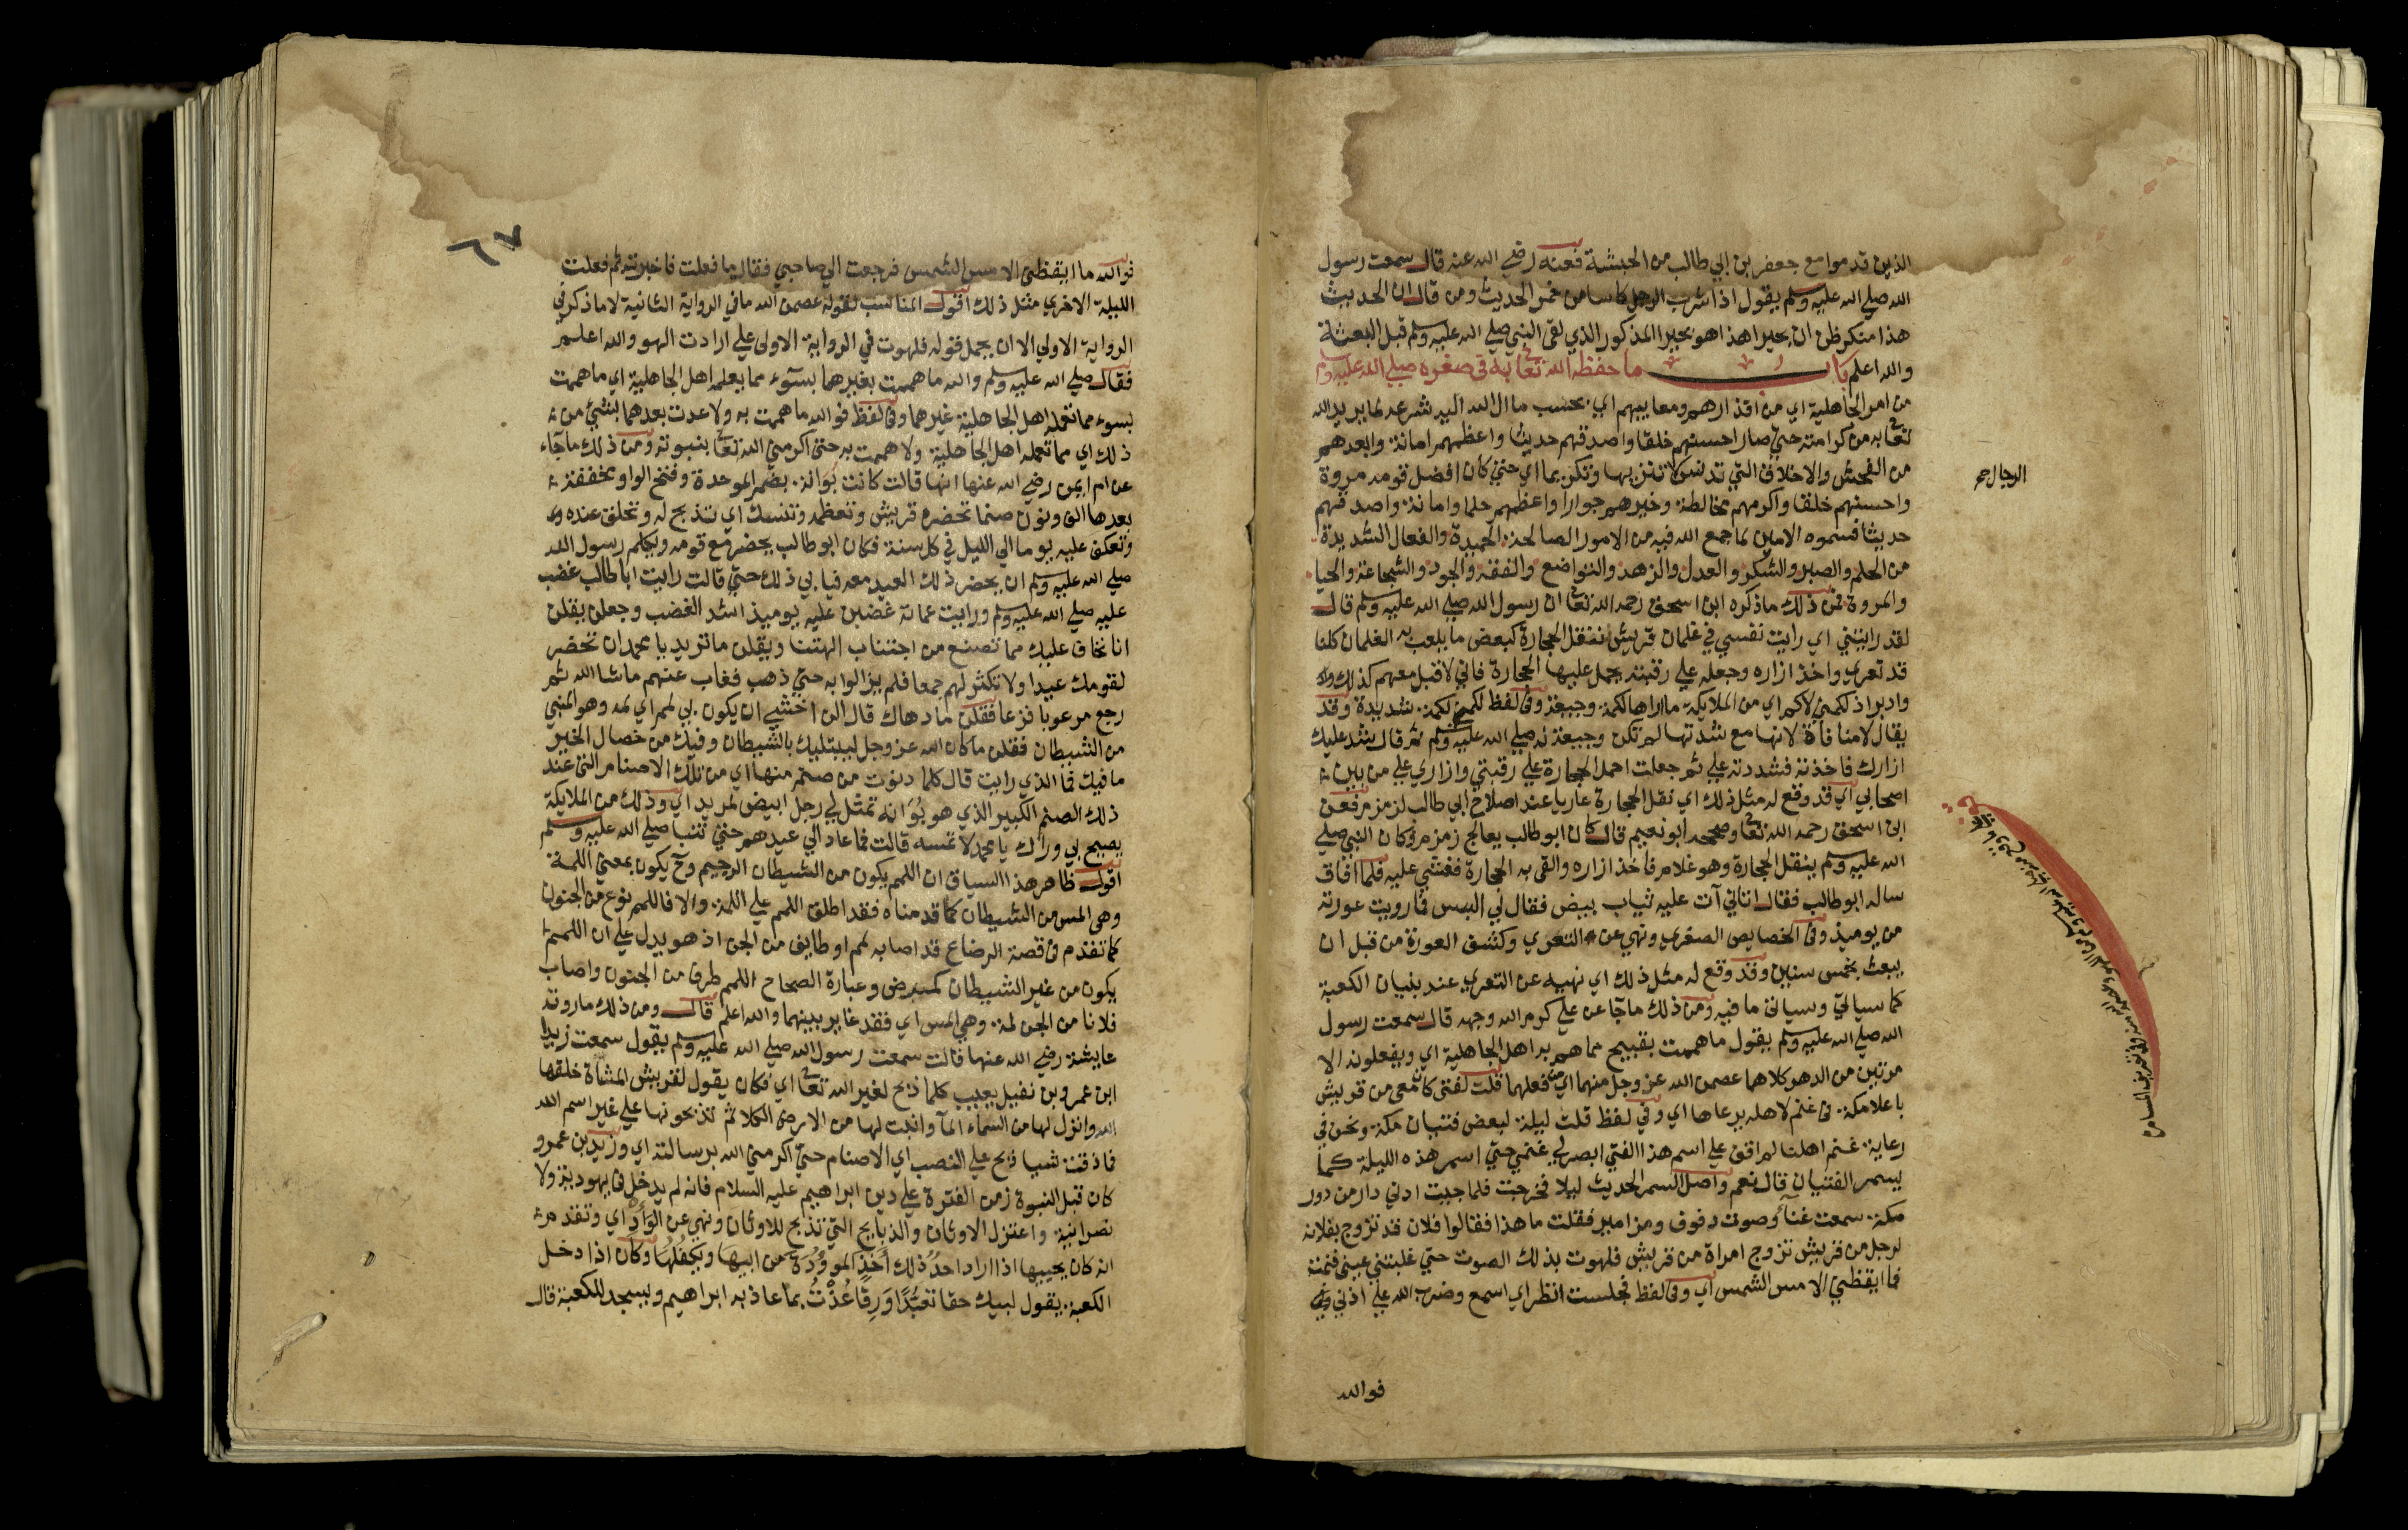 الذين قدموا مع جعفر بن ابي طالب من الحبشة فعنه رضي الله عنه قال سمعت رسول
الله صلي الله عليه وسلم يقول اذا شرب الرجل كاسا من خمر الحديث ومن قال ان الحديث
هذا منكر ظن ان بحيرا هذا هو بحيرا المذكور الذي لقي النبي صلي الله عليه وسلم قبل البعثة
والله اعلم باب ما حفظه الله تعا به في صغره صلي الله عليه وسلم
من امر الجاهلية اي من اقذارهم ومعايبهم اي بحسب ما ال الله اليه شرعه لما يريد الله
تعا به من كرامته حتي صار احسنهم خلقا واصدقهم حديثا واعظمهم امانة وابعدهم
من الفحش والاخلاق التي تدنس الرجال تنزيها وتكريما اي حتي كان افضل قومه مروة
واحسنهم خلقا واكرمهم مخالطة وخيرهم جوارا واعظمهم حلما وامانة واصدقهم
حديثا فسموه الامين لما جمع الله فيه من الامور الصالحة الحميدة والفعال السديدة
من الحلم والصبر والشكر والعدل والزهد والتواضع والعفة والجود والشجاعة والحيا
والمروة فمن ذلك ما ذكره ابن اسحق رحمه الله تعا ان رسول الله صلي الله عليه وسلم قال
لقد رايتني اي رايت نفسي في غلمان قريش ننقل الحجارة لبعض ما يلعب به الغلمان كلنا
قد تعري واخذ ازاره وجعله علي رقبته يحمل عليها الحجارة فاني لاقبل معهم كذلك
وادبر اذ لكمني لاكم اي من الملايكة ما اراها لكمة وجيعة وفي لفظ لكمني لكمة شديدة وقد
يقال لا منافاة لانها مع شدتها لم تكن وجيعة له صلي الله عليه وسلم ثم قال شد عليك
ازارك فاخذته فشددته علي ثم جعلت احمل الحجارة علي رقبتي وازاري علي من بين
اصحابي اي قد وقع له مثل ذلك اي نقل الحجارة عاريا عند اصلاح ابي طالب لزمزم فعن
ابن اسحق رحمه الله تعا وصححه ابو نعيم قال كان ابو طالب يعالج زمزم وكان النبي صلي
الله عليه وسلم ينقل الحجارة وهو غلام فاخذ ازاره واتقي به الحجارة فغشي عليه فلما افاق
ساله ابو طالب فقال اتاني آت عليه ثياب بيض فقال لي استتر فما رويت عورته
من يوميذ وفي الخصايص الصغري ونهي عن التعري وكشف العورة من قبل ان
يبعث بخمس سنين وقد وقع له مثل ذلك اي نهيه عن التعري عند بنيان الكعبة
كما سياتي وسياتي ما فيه ومن ذلك ما جآ عن علي كرم الله وجهه قال سمعت رسول
الله صلي الله عليه وسلم يقول ما هممت بقبيح مما هم به اهل الجاهلية اي ويفعلونه الا
مرتين من الدهر كلاهما عصمن الله عز وجل منهما اي من فعلهما قلت لفتي كان معي من قريش
باعلا مكة في غنم لاهله يرعاها اي وفي لفظ قلت ليلة لبعض فتيان مكة ونحن في
رعاية غنم اهلنا لم اقف علي اسم هذا الفتي ابصر لي غنمي حتي اسمر هذه الليلة كما
يسمر الفتيان قال نعم واصل السمر الحديث ليلا فخرجت فلما جيت ادني دار من دور
مكة سمعت غنآ وصوت دفوف ومزامير فقلت ما هذا فقالوا فلان قد تزوج بفلانه
لرجل من قريش تزوج امراة من قريش فلهوت بذلك الصوت حتي غلبتني عيني فنمت
فما ايقظني الا مس الشمس اي وفي لفظ فجلست انظر اي اسمع وضرب الله علي اذني
فوالله
الرجال صح
فوالله ما ايقظني الا مس الشمس فرجعت الي صاحبي فقال ما فعلت فاخبرته ثم فعلت
الليلة الاخري مثل ذلك اقول المناسب لقوله عصمن الله ما في الرواية الثانية لا ما ذكر في
الرواية الاولي الا ان يحمل قوله فلهوت في الرواية الاولي علي ارادت الهو والله اعلم
فقال صلي الله عليه وسلم والله ما هممت بغيرهما بسوء مما يعمله اهل الجاهلية اي ما هممت
بسوء مما تعمله اهل الجاهلية غيرهما وفي لفظ فوالله ما هممت به ولا عدت بعدهما بشيئ من
ذلك اي مما تعمله اهل الجاهلية ولا هممت به حتي اكرمني الله تعا بنبوته ومن ذلك ما جآء
عن ام ايمن رضي الله عنها انها قالت كانت بوانة بضم الموحدة وفتح الواو مخففة
بعدها الف ونون صنما تحضره قريش وتعظمه وتنسك اي تذبح له وتحلق عنده
وتعكف عليه يوما الي الليل في كل سنة فكان ابو طالب يحضر مع قومه ويكلم رسول الله
صلي الله عليه وسلم ان يحضر ذلك العيد معه فيابي ذلك حتي قالت رايت ابا طالب غضب
عليه صلي الله عليه وسلم ورايت عماته غضبن عليه يوميذ اشد الغضب وجعلن يقلن
انا نخاف عليك مما تصنع من اجتناب الهتنا ويقلن ما تريد يا محمد ان تحضر
لقومك عيدا ولا تكثر لهم جمعا فلم يزالوا به حتي ذهب فغاب عنهم ما شا الله ثم
رجع مرعوبا فزعا فقلن ما دهاك قال اني اخشي ان يكون بي لمم اي لمة وهو المس
من الشيطان فقلن ما كان الله عز وجل ليبتليك بالشيطان وفيك من خصال الخير
ما فيك فما الذي رايت قال كلما دنوت من صنم منها اي من تلك الاصنام التي عند
ذلك الصنم الكبير الذي هو بوانه تمثل لي رجل ابيض طويل اي وذلك من الملايكة
يصيح بي وراك يا محمد لا تمسه قالت فما عاد الي عيدهم حتي تنبا صلي الله عليه وسلم
اقول ظاهر هذا السياق ان اللمم يكون من الشيطان الرجيم وح يكون بمعني اللمة
وهي المس من الشيطان كما قدمناه فقد اطلق اللمم علي اللمة والا فاللمم نوع من الجنون
كما تقدم في قصة الرضاع قد اصابه لمم او طايف من الجن اذ هو يدل علي ان اللمم
يكون من غير الشيطان كمرض وعبارة الصحاح اللمم طرف من الجنون واصاب
فلانا من الجن لمة وهي المس اي فقد غاير بينهما والله اعلم قال ومن ذلك ما روته
عايشة رضي الله عنها قالت سمعت رسول الله صلي الله عليه وسلم يقول سمعت زيدا
ابن عمرو بن نفيل يعيب كلما ذبح لغير الله تعا اي فكان يقول لقريش الشاة خلقها
الله وانزل لها من السماء المآ وانبت لها من الارض الكلا ثم تذبحونها علي غير اسم الله
فما ذقت شيا ذبح علي النصب اي الاصنام حتي اكرمني الله برسالته اي وزيد بن عمرو
كان قبل النبوة زمن الفترة علي دين ابراهيم عليه السلام فانه لم يدخل في يهودية ولا
نصرانية واعتزل الاوثان والذبايح التي تذبح للاوثان ونهي عن الوأد اي وتقدم
انه كان يحييها اذا اراد احد ذلك أخذ الموؤدة من ابيها ويكفلها وكان اذا دخل
الكعبة يقول لبيك حقا تعبدا ورقا عذت بما عاذ به ابراهيم ويسجد للكعبة قال